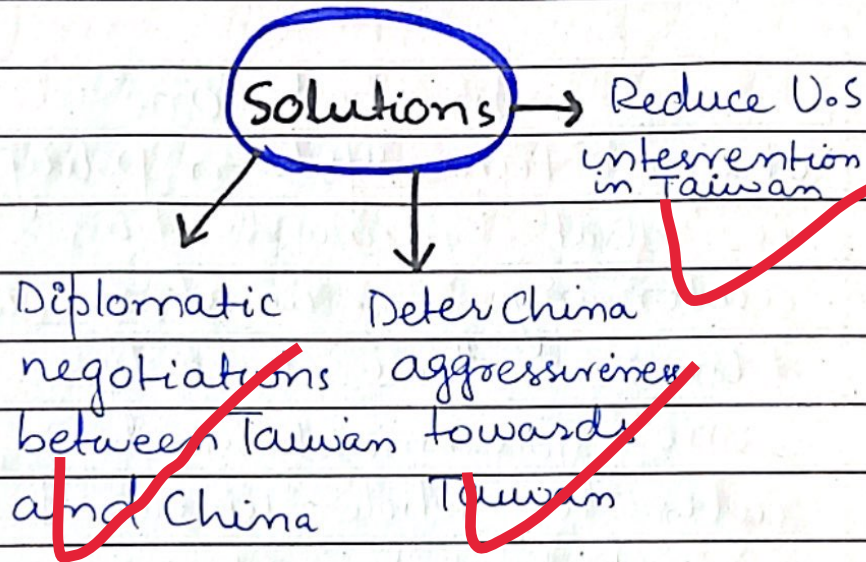 Solutions → Reduce U.S
intervention
in Taiwan
Diplomatic
negotiations
between Taiwan
and China
Deter China
aggressiveness
towards
Taiwan